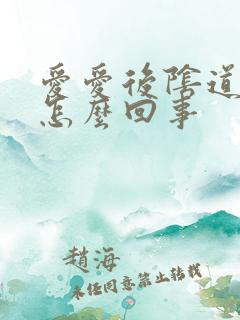 愛愛後陰道
怎麼回事
趙海
未經同意禁止轉載